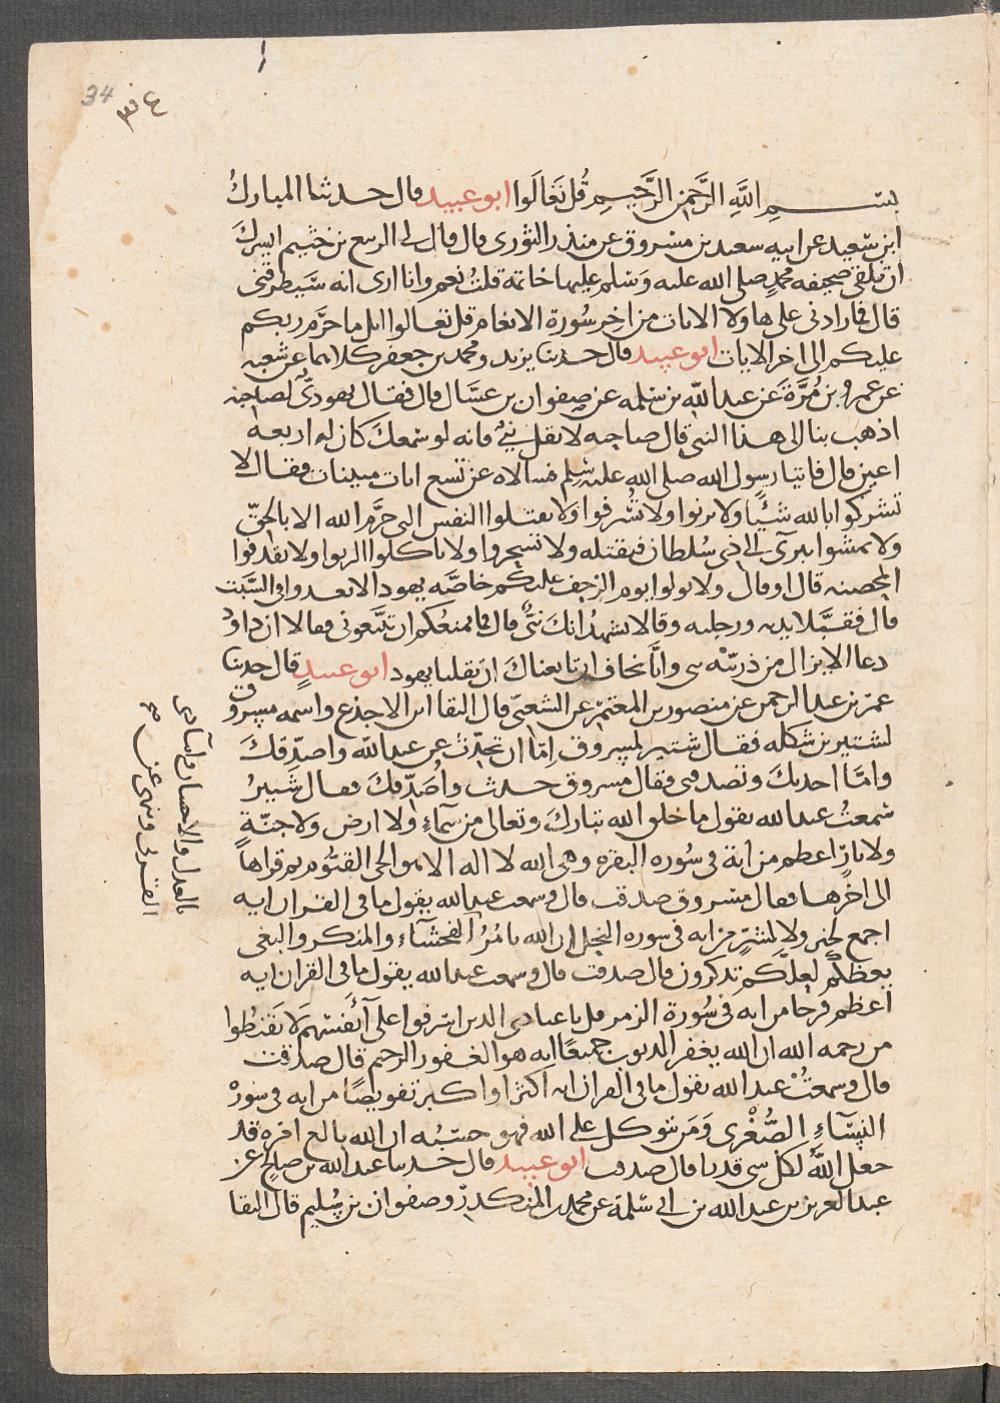 34
٣٤
بسم اللَّهِ الرَّحمنِ الرَّحِيمِ قُل تَعَالَوا ابو عبيد قال حدثنا المبارك
ابن سَعيد عن ابيه سعيد بن مسروق عن منذر الثورى قال قال لى الربيع بن خثيم ايسرك
ان تلقى صحيفه محمدٍ صلى الله عليه وسلم عليها خاتمه قلتُ نعم وانا ارى انه سَيطرفنى
قال فما زادنى على هاولا الايات من اخر سُورة الانعام قل تعالوا اتل ما حرَّم ربكم
عليكم الى اخر الايات ابو عبيد قال حدثنا يزيد ومحمد بن جعفر كلاهما عن شعبه
عن عمرو بن مُرَّةَ عن عبد الله بن سَلمه عن صفوان بن عسَّال قال فقال يهودىٌّ لصاحبه
اذهب بنا الى هذا النبى قال صاحبه لا تقل نبىٌّ فانه لو سَمعكَ كان له اربعه
اعين قال فاتيا رسول الله صلى الله عليه وسلم فسالاه عن تسع ايات مبينات فقال لا
تشركوا بالله شيئًا ولا تزنوا ولا تسْرفوا ولا تقتلوا النفس التى حرَّم الله الا بالحقّ
ولا تمشوا ببرىٓ الى ذى سُلطان فيقتله ولا تسحروا ولا تاكلوا الربوا ولا تقذفوا
المحصنه قال او قال ولا تولوا يوم الزحف عليكم خاصَّه يهود الا تعدوا فى السَّبت
قال فقبَّلا يديه ورجليه وقالا نشهدُ انك نبىٌّ قال فما يمنعُكم ان تتَّبعونى فقالا ان داوُدَ
دعا الا يزال من ذريّته نبى وانَّا نخاف ان تابعناكَ ان تقتلنا يهود ابو عبيدٍ قال حدثنا
عمر بن عبد الرحمن عن منصور بن المعتمر عن الشعبىّ قال التقا ابن الاجدع واسمه مسروق
لشتير بن شكله فقال شتير لمسروق اِمّا ان تحدِّث عن عبد الله واصدّقكَ
وامَّا احدثك وتصدقنى فقال مسروق حدث واُصَدِّقكَ فقال شتيرُ
سَمعتُ عبد الله يقول ما خلق الله تباركَ وتعالى من سَمآءٍ ولا ارض ولا جنّةٍ
ولا نارٍ اعظم من اية فى سُوره البقره وهى الله لا اله الا هو الحى القيُّوم ثم قراها
الى اخرها فقال مسروق صدقت قال وسمعت عبد الله يقول ما فى القران ايه
اجمع لخير ولا لشرٍّ من ايه فى سوره النحل ان الله يامُرُ الفحشآء والمنكر والبغى
بالعدل والاحسان وايتاءى
القربى وينهى عن صح
يعظكُم لعلَّكم تذكرون قال صدقت قال وسمعت عبد الله يقول ما فى القران ايه
اعظم فرحا من ايه فى سُورة الزمر قل يا عبادى الذين اسْرفوا على اَنْفسهم لا تقنطُوا
من رحمه الله ان الله يغفر الذنوب جميعًا انه هو الغفور الرحيم قال صدقت
قال وسمعتُ عبد الله يقول ما فى القران ايه اكثر او اكبر تفويضًا من ايه فى سورة
النسَآءِ الصُّغْرى وَمَن يتوكل على الله فهو حسْبُه ان الله بالغ امره قد
جعل اللَّهُ لكل شى قدرا قال صدقت ابو عبيد قال حدثنا عبد الله بن صَالح عن
عبد العزيز بن عبد الله بن ابى سَلمة عن محمد بن المنكدر وصفوان بن سُليم قال التقا